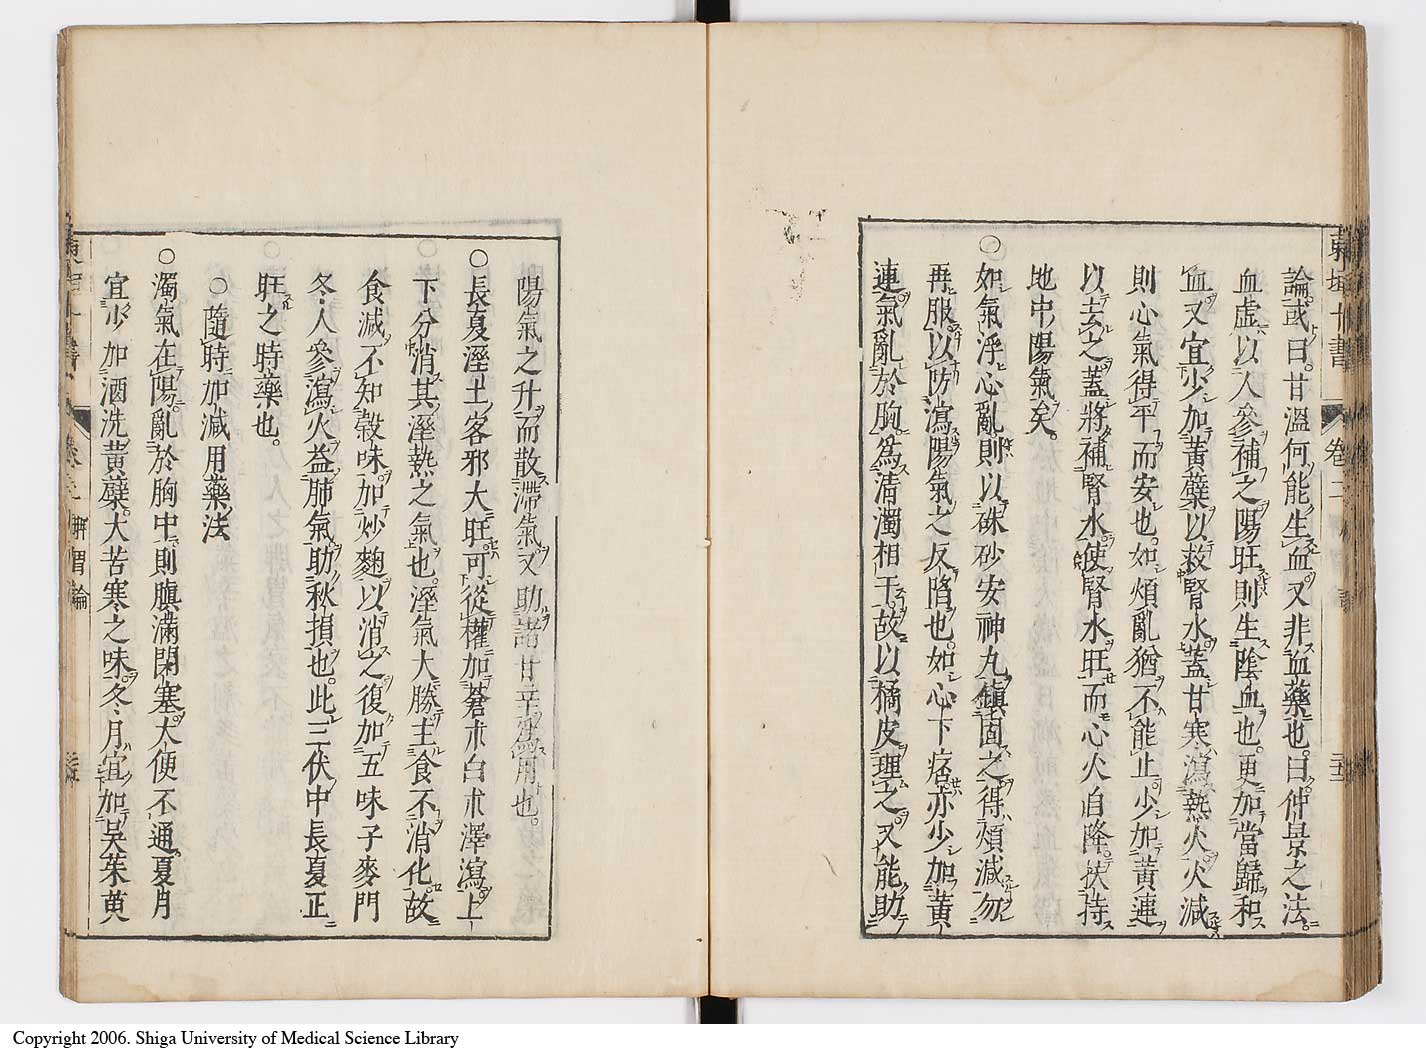 東垣十書
卷二
論或曰甘溫何能生血又非血藥也曰仲景之法
血虛以人參補之陽旺則生陰血也更加當歸和
血又宜少加黃蘗以救腎水蓋甘寒瀉熱火火減
則心氣得平而安也如煩亂猶不能止少加黃連
以去之蓋將補腎水使腎水旺而心火自降扶持
地中陽氣矣
○如氣浮心亂則以硃砂安神丸鎮固之得煩減勿
再服以防瀉陽氣之反陷也如心下痞亦少加黃
連氣亂於胸爲淸濁相干故以橘皮理之又能助
陽氣之升而散滯氣又助諸甘辛爲用也
○長夏溼土客邪大旺可從權加蒼朮白朮澤瀉上
下分消其溼熱之氣也溼氣大勝主食不消化故
食減不知穀味加炒麴以消之復加五味子麥門
冬人參瀉火益肺氣助秋損也此三伏中長夏正
旺之時藥也
○隨時加減用藥法
○濁氣在陽亂於胸中則䐜滿閉塞大便不通夏月
宜少加酒洗黃蘗大苦寒之味冬月宜加吳茱萸
脾胃論
Copyright 2006. Shiga University of Medical Science Library